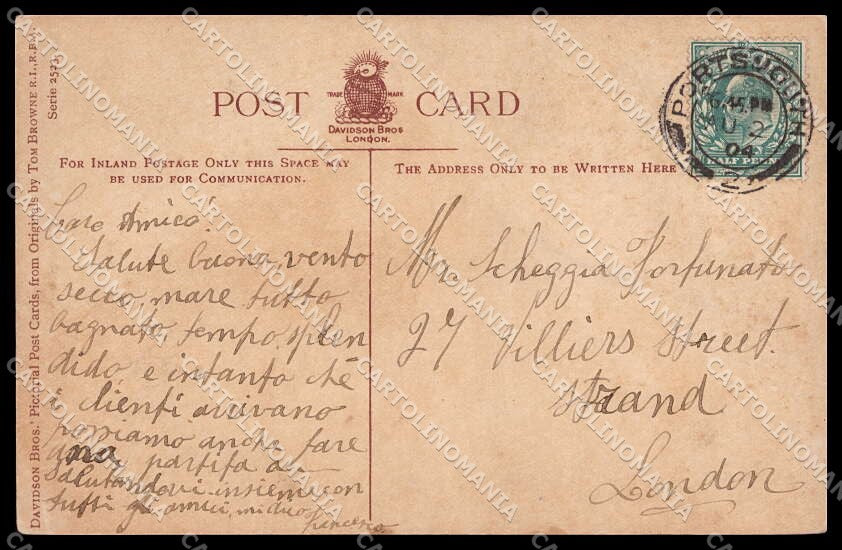 POST CARD
TRADE MARK
DAVIDSON BROS
LONDON.
FOR INLAND POSTAGE ONLY THIS SPACE MAY
BE USED FOR COMMUNICATION.
THE ADDRESS ONLY TO BE WRITTEN HERE
DAVIDSON BROS.' Pictorial Post Cards, from Originals by TOM BROWNE R.I., R.B.A.
Serie 2523.
PORTSMOUTH
6.45.PM
04
27
HALF PENNY
Caro Amico!
Salute buona, vento
secco, mare tutto
bagnato, tempo splen
dido, e intanto che
i clienti arrivano
possiamo anche fare
una partita a
Salutandovi insieme con
tutti gli amici, mi dico
Mr. Scheggia Fortunato
27 Villiers Street.
Strand
London
CARTOLINOMANIA